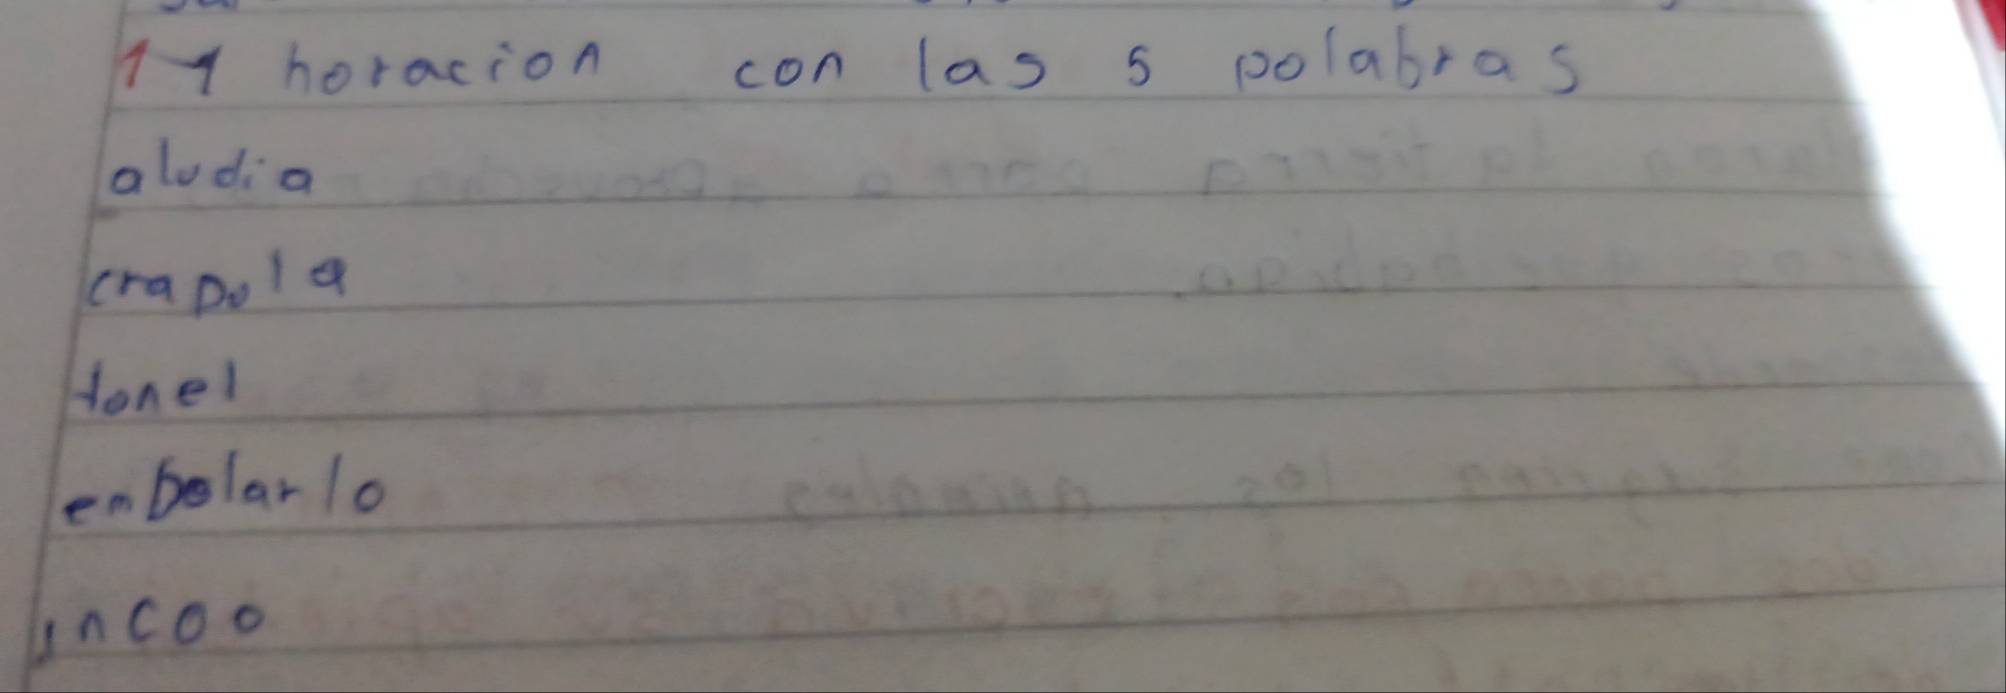 1 1 horacion con las 5 polabras
aludia
crapula
tonel
enbolarlo
incoo